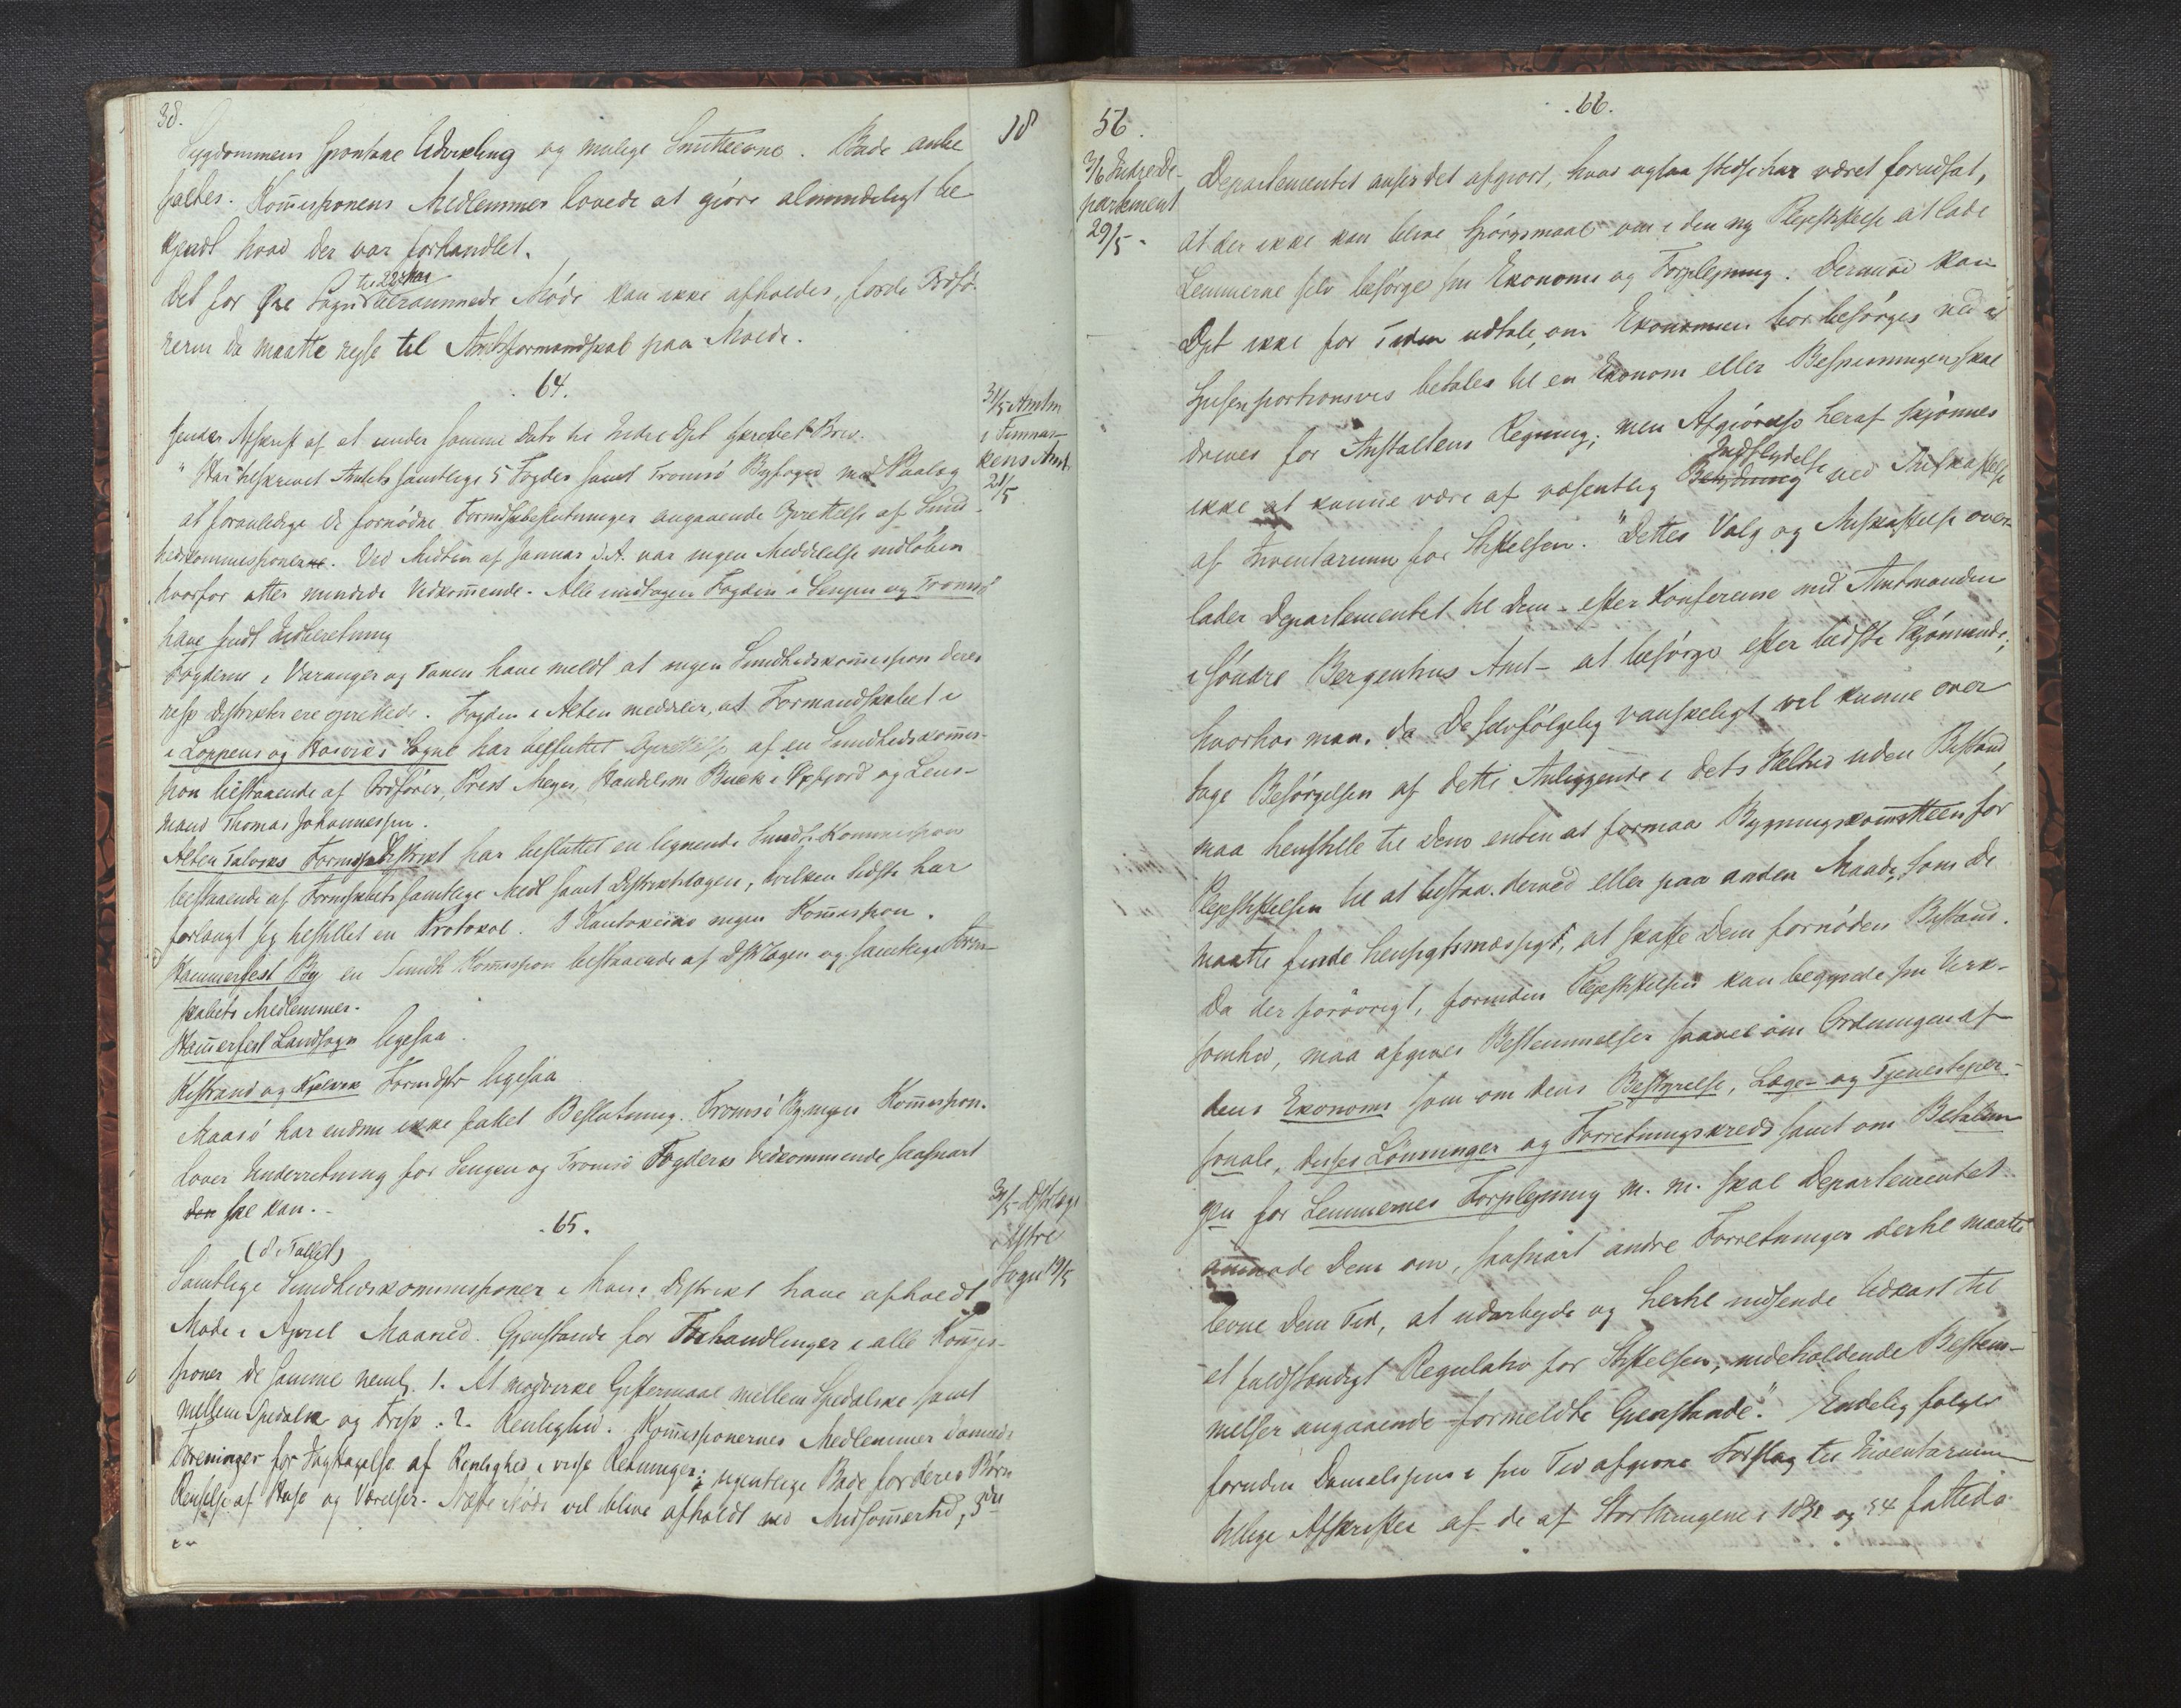 38.
18
Sygdommens spontane Udvikling og mulige Smitteevne. Bade anbe
faldes. Kom̄issionens Medlemmer lovede at gjöre almindeligt be
kjendt hvad der var forhandlet.
til 22de Mai
Det for Öre Sogn beraummede Möde kan ikke afholdes, fordi Ordfö-
reren da maatte rejse til Amtsformandskab paa Molde.
64.
31/5 Amtm
i Finmar-
kens Amt
21/5
sender Afskrift af et under samme Dato til Indre Dpt skrevet Brev.
" Har tilskrevet Amtets samtlige 5 Fogder samt Tromsö Byfoged med Paalæg
at foranledige de fornödne Formskbeslutninger angaaende Oprettelse af Sund-
hedskommissionerne. Ved Midten af Januar d.A. var ingen Meddelelse indlöben
hvorfor atter mindede Vedkom̄ende. Alle undtagen Fogden i Senjen og Tromsö
have sendt Indberetning
Fogderne i Varanger og Tanen have meldt at ingen Sundhedskom̄ission deres
resp Distrikter ere oprettede. Fogden i Alten meddeler, at Formandskabet i
i Loppens og Hasviks Sogne har besluttet Oprettelse af en Sundhedskom̄is-
sion bestaaende af Ordförer, Præst Meyer, Handelsm Buck i Öxfjord og Lens-
mand Thomas Johannessen.
Alten Talviks FormskDistrikt har besluttet en lignende Sundh. Kommission
bestaaende af Formskabets samtlige Medl samt Distriktslægen, hvilken sidste har
forlangt sig bestillet en Protokol. I Kautokeino ingen Kom̄ission.
Hammerfest By en Sundh Kom̄ission bestaaende af Dstlægen og samtlige Form-
skabets Medlemmer.
Ham̄erfest Landsogn ligesaa.
Kistrand og Kjelvik Formdstr ligesaa
Maasö har endnu ikke fattet Beslutning. Tromsö By ingen Kom̄ission.
Lover Underretning for Senjen og Tromsö Fogderis Vedkommende saasnart
den ske kan.
65.
31/5 Dstlæge
i Ytre
Sogn 19/5
(8 i Tallet)
Samtlige Sundhedskommissioner i hans Distrikt have afholdt
Möde i April Maaned. Gjenstande for Forhandlinger i alle Kom̄is-
sioner de samme neml. 1. At modvirke Giftermaal mellem Spedalske samt
mellem Spedalsk og Frisk. 2. Renlighed. Kom̄issionernes Medlemmer dannede
Foreninger for Iagttagelse af Renlighed i visse Retninger: ugentlige Bade for deres Börn
Renselse af Huse og Værelser. Næste Möde vil blive afholdt ved Midsom̄ertid, 3die

56.
66.
3/6 Indre De-
partement
29/5.
Departementet anser det afgjort, hvad ogsaa stedse har været forudsat,
at der ikke kan blive Spörgsmaal om i den ny Plejestiftelse at lade
Lemmerne selv besörge sin Ekonomi og Forplejning. Derimod kan
Dpt ikke for Tiden udtale, om Ekonomien bör besörges ved at
Spisen portionsvis betales til en Ekonom eller Bespisningen skal
drives for Anstaltens Regning; men Afgjörelse heraf skjönnes
Indflydelse
ikke at kunne være af væsentlig Betydning ved Anskaffelse
af Inventarium for Stiftelsen. "Dettes Valg og Anskaffelse over-
lader Departementet til Dem – efter Konferense med Amtmanden
i Söndre Bergenhus Amt – at besörge efter bedste Skjönnende;
hvorhos man, da De selvfölgelig vanskeligt vil kunne over
tage Besörgelsen af dette Anliggende i dets Helhed uden Bistand,
maa henstille til Dem enten at formaa Bygningskom̄itteen for
Plejestiftelsen til at bistaa derved eller paa anden Maade, som De
maatte finde hensigtsmæssigst, at skaffe Dem fornöden Bistand.
Da der forövrigt, forinden Plejestiftelsen kan begynde sin Virk-
somhed, maa afgives Bestemmelser saavel om Ordningen af
dens Ekonomi som om dens Bestyrelse, Læge- og Tjenesteper-
sonale, disses Lönninger og Forretningskreds samt om Betalin
gen for Lemmernes Forplejning m. m. skal Departementet
anmode Dem om, saasnart andre Forretninger dertil maatte
levne Dem Tid, at udarbejde og hertil indsende Udkast til
et fuldstændigt Regulativ for Stiftelsen, indeholdende Bestem-
melser angaaende formeldte Gjenstande." Endelig fölger
foruden Danielssens i sin Tid afgivne Forslag til Inventarium
tillige Afskrifter af de af Storthingene i 1851 og 54 fattede